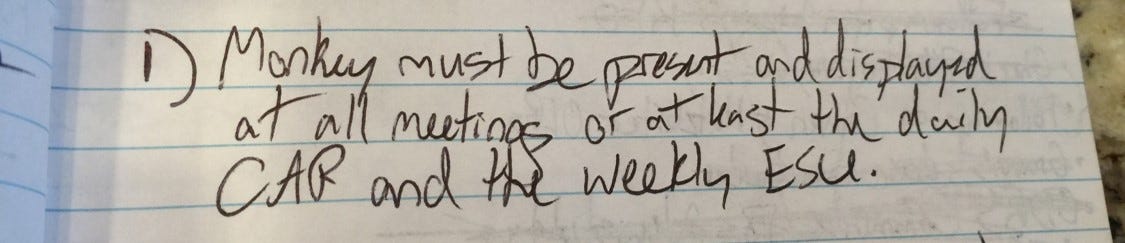 1) Monkey must be present and displayed
at all meetings or at least the daily
CAR and the weekly ESU.